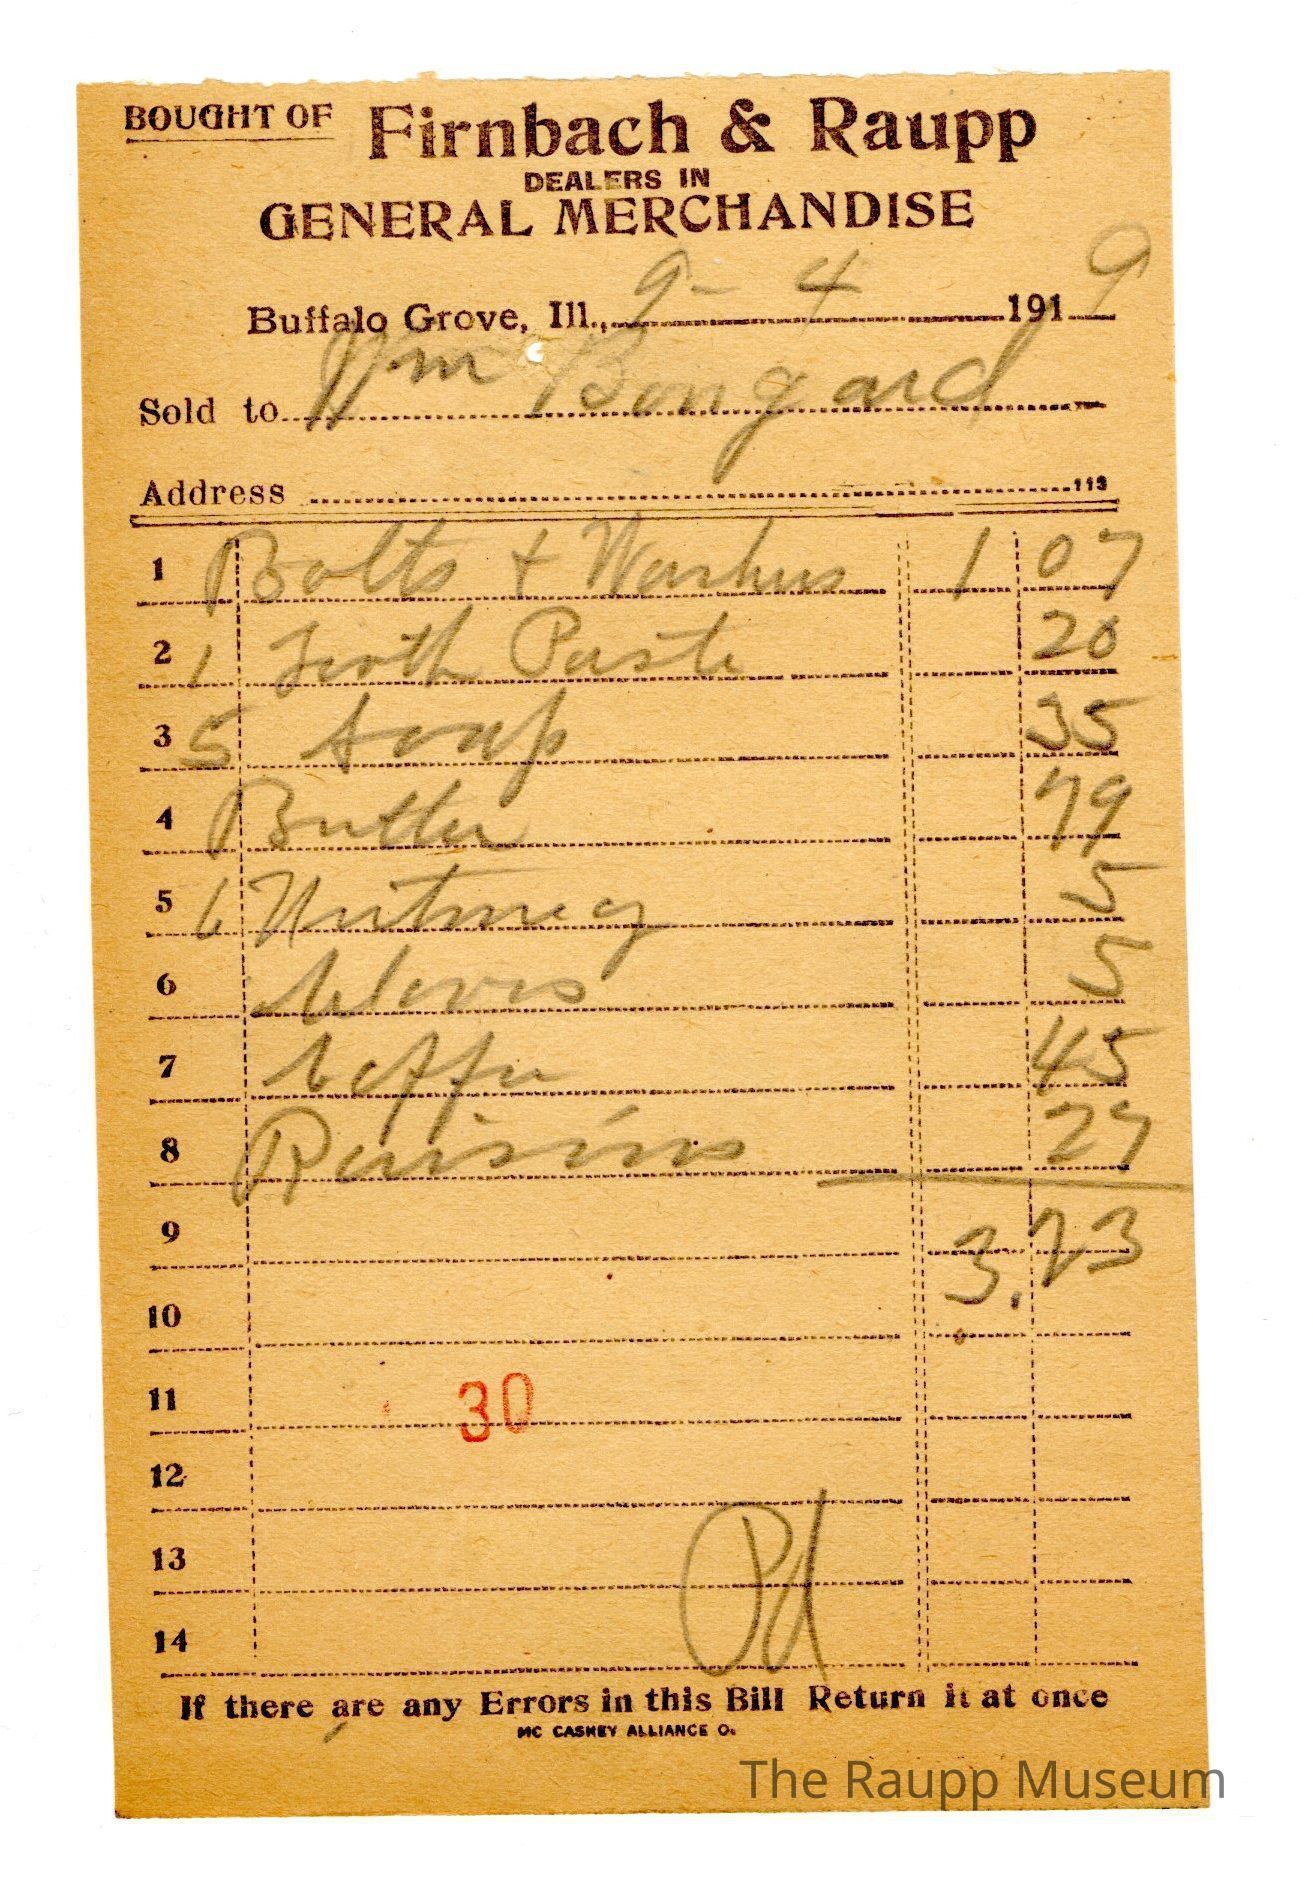 BOUGHT OF Firnbach & Raupp
DEALERS IN
GENERAL MERCHANDISE
Buffalo Grove, Ill., 9-4 1919
Sold to Wm Bongard
Address 113
1 Bolts + Washers 1 07
2 1 Tooth Paste 20
3 5 Soap 35
4 Butter 79
5 6 Nutmeg 5
6 Cloves 5
7 Coffee 45
8 Raisins 27
9 3.23
10
11 30
12
13 Pd
14
If there are any Errors in this Bill Return it at once
MC CASKEY ALLIANCE O.
The Raupp Museum